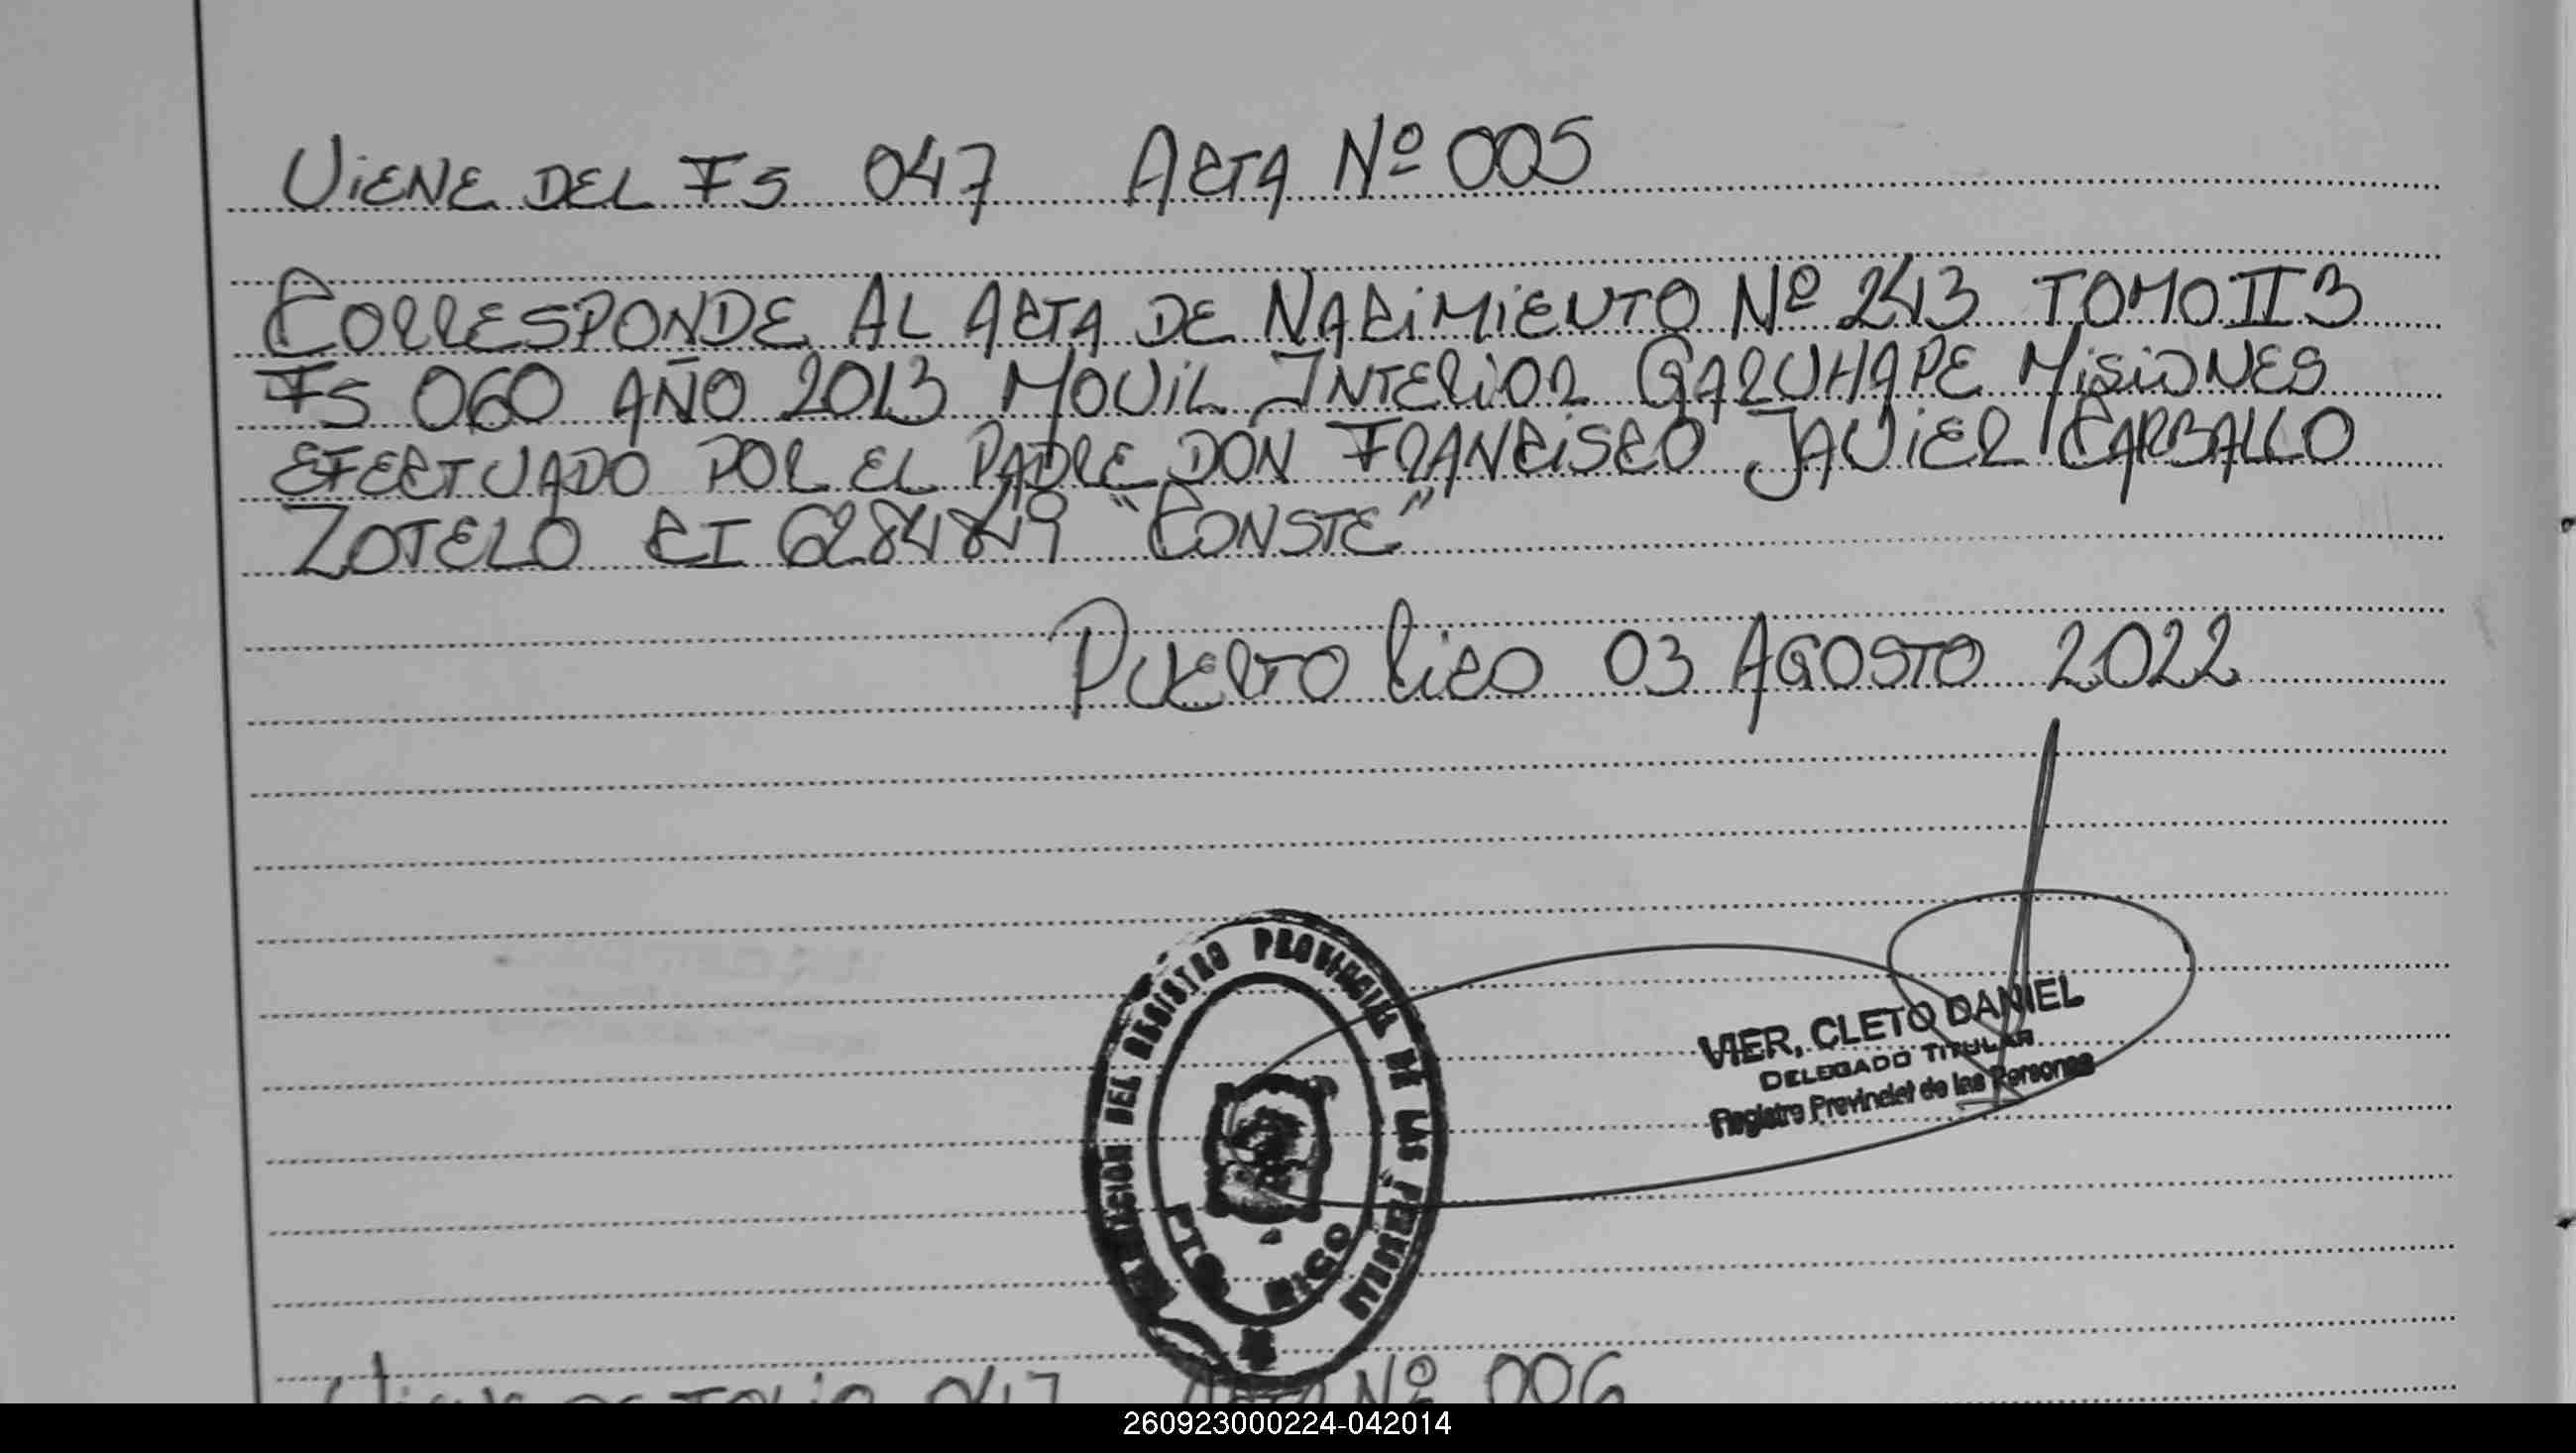 VIENE DEL FS 047 ACTA Nº 005
CORRESPONDE AL ACTA DE NACIMIENTO Nº 243 TOMO II 3
FS 060 AÑO 2013 MOVIL INTERIOR GARUHAPE MISIONES
EFECTUADO POR EL PADRE DON FRANCISCO JAVIER CARBALLO
ZOTELO CI 6284849 "CONSTE"
PUERTO RICO 03 AGOSTO 2022
DEL REGISTRO PROVINCIAL DE LAS PERSONAS
RICO
VIER, CLETO DANIEL
DELEGADO TITULAR
Registro Provincial de las Personas
VIENE DE FOLIO 047 ACTA Nº 006
260923000224-042014